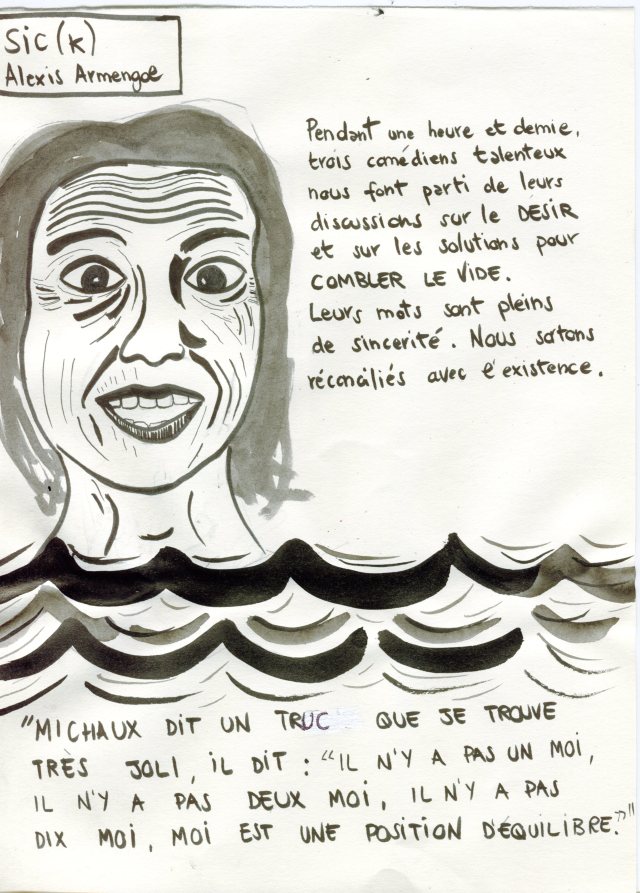 Sic(k)
Alexis Armengol
Pendant une heure et demie,
trois comédiens talenteux
nous font parti de leurs
discussions sur le DÉSIR
et sur les solutions pour
COMBLER LE VIDE.
Leurs mots sont pleins
de sincerité. Nous sortons
réconciliés avec l'existence.
"MICHAUX DIT UN TRUC QUE JE TROUVE
TRÈS JOLI, IL DIT : "IL N'Y A PAS UN MOI,
IL N'Y A PAS DEUX MOI, IL N'Y A PAS
DIX MOI, MOI EST UNE POSITION D'ÉQUILIBRE.""